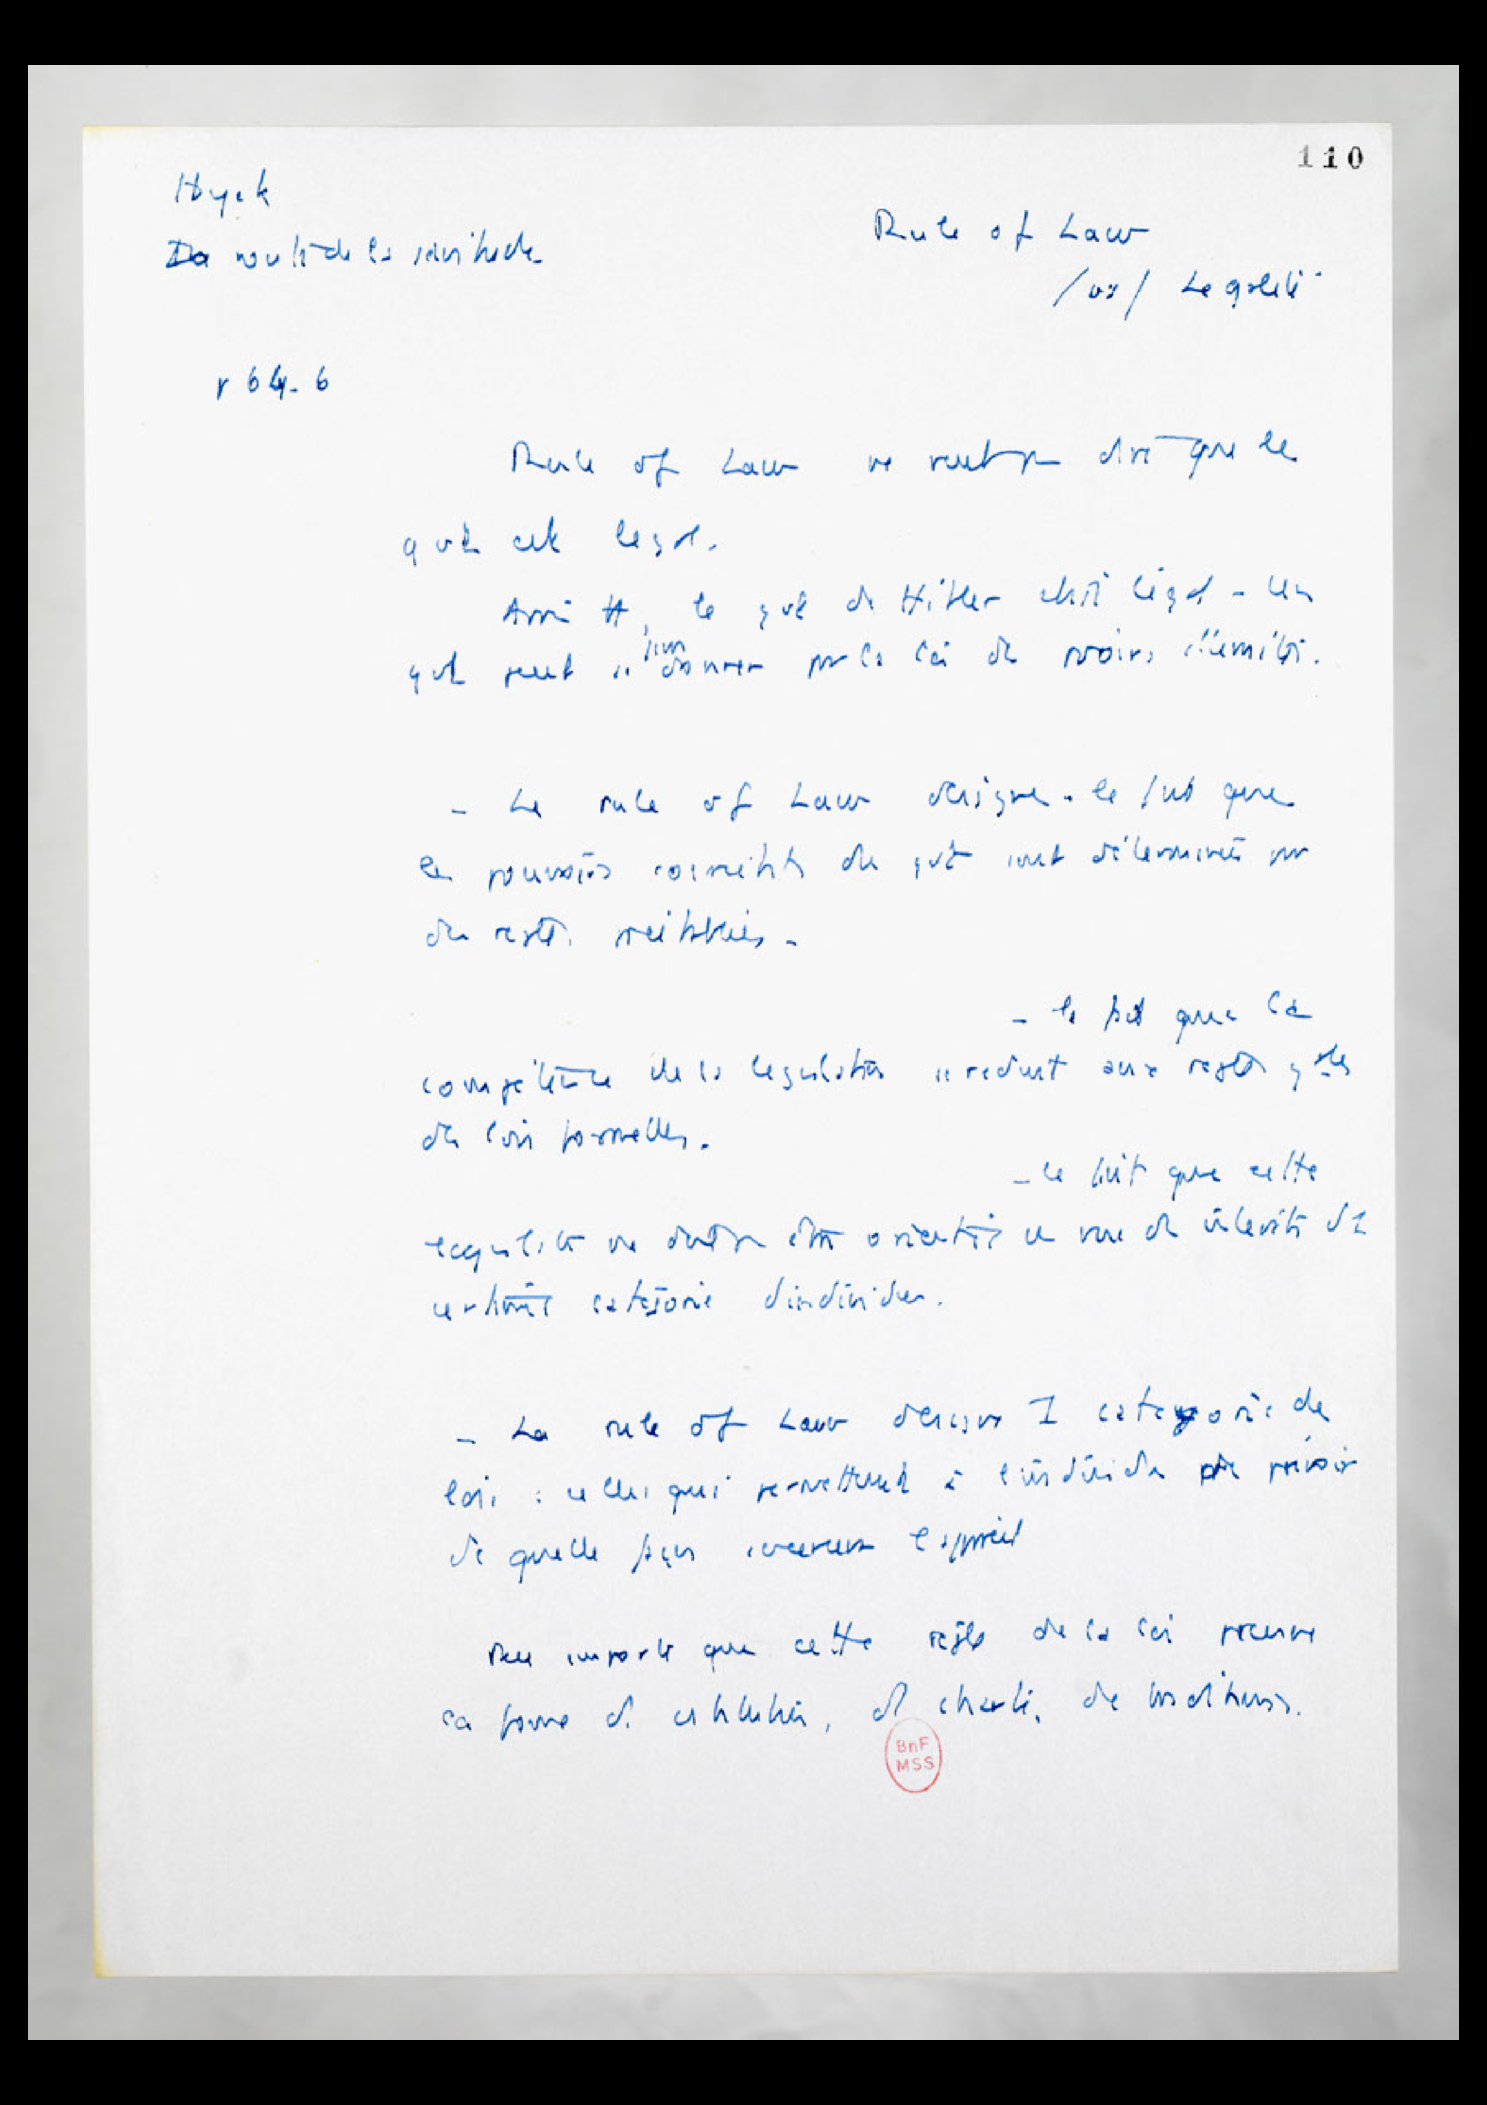 110
Hayek
La route de la servitude
Rule of Law
/vs/ Légalité
p 64-6
Rule of Law ne veut pas dire que le
gvt est légal.
Ainsi le gvt de Hitler était légal - Un
gvt peut se faire donner par la loi des pvoirs illimités.
- La rule of Law désigne - le fait que
les pouvoirs coercitifs du gvt sont déterminés par
des règles préétablies -
- le fait que la
compétence de la législation se réduit aux règles gales
des lois formelles.
- le fait que cette
législation ne doit pas être orientée en vue des intérêts d'1
certaine catégorie d'individus.
- La rule of Law désigne 1 catégorie de
lois : celles qui permettent à l'individu de prévoir
de quelle façon l'appareil
Peu importe que cette règle de la loi prenne
la forme de, de charte, de traditions.
BnF
MSS